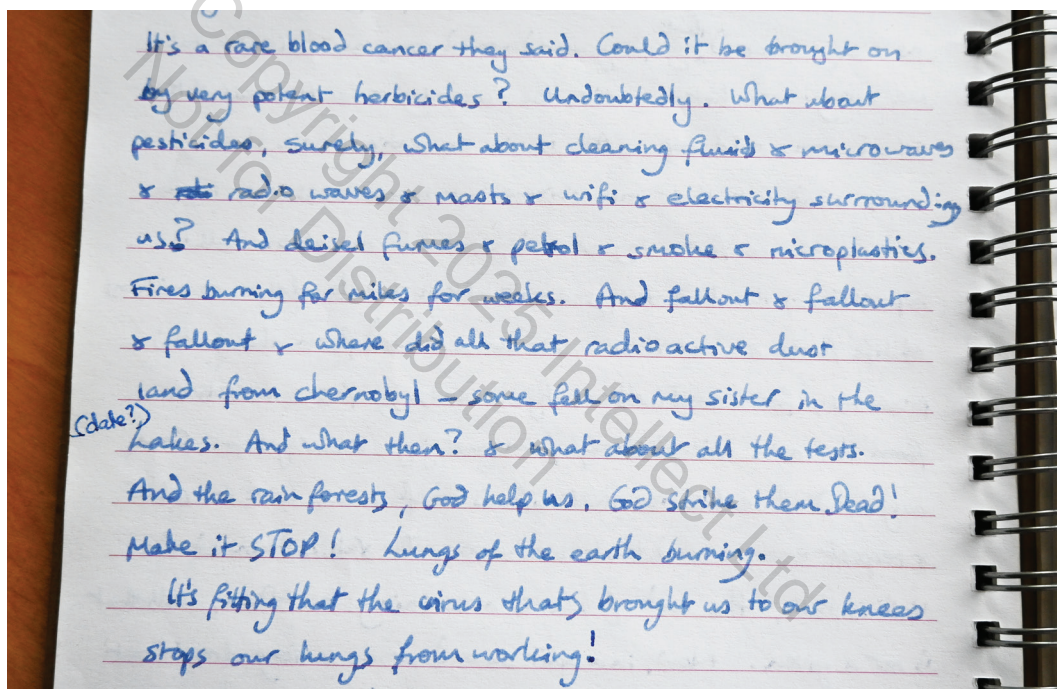 It's a rare blood cancer they said. Could it be brought on
by very potent herbicides? Undoubtedly. What about
pesticides, surely, what about cleaning fluids & microwaves
& radio waves & masts & wifi & electricity surrounding
us? And deisel fumes & petrol & smoke & microplastics.
Fires burning for miles for weeks. And fallout & fallout
& fallout & where did all that radioactive dust
land from chernobyl – some fell on my sister in the
(date?)
Lakes. And what then? & what about all the tests.
And the rain forests, God help us, God strike them Dead!
Make it STOP! Lungs of the earth burning.
It's fitting that the virus that's brought us to our knees
stops our lungs from working!
Copyright 2025 Intellect Ltd
Not for Distribution